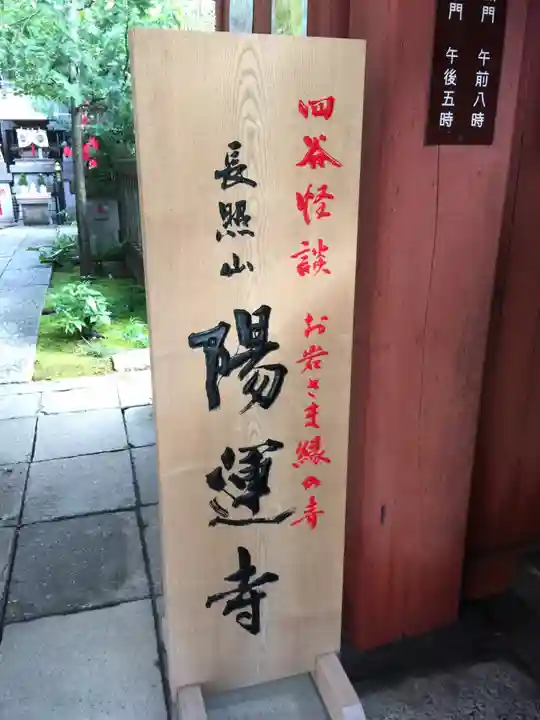 四谷怪談 お岩さま縁の寺
長照山
陽運寺
門 午前八時
門 午後五時